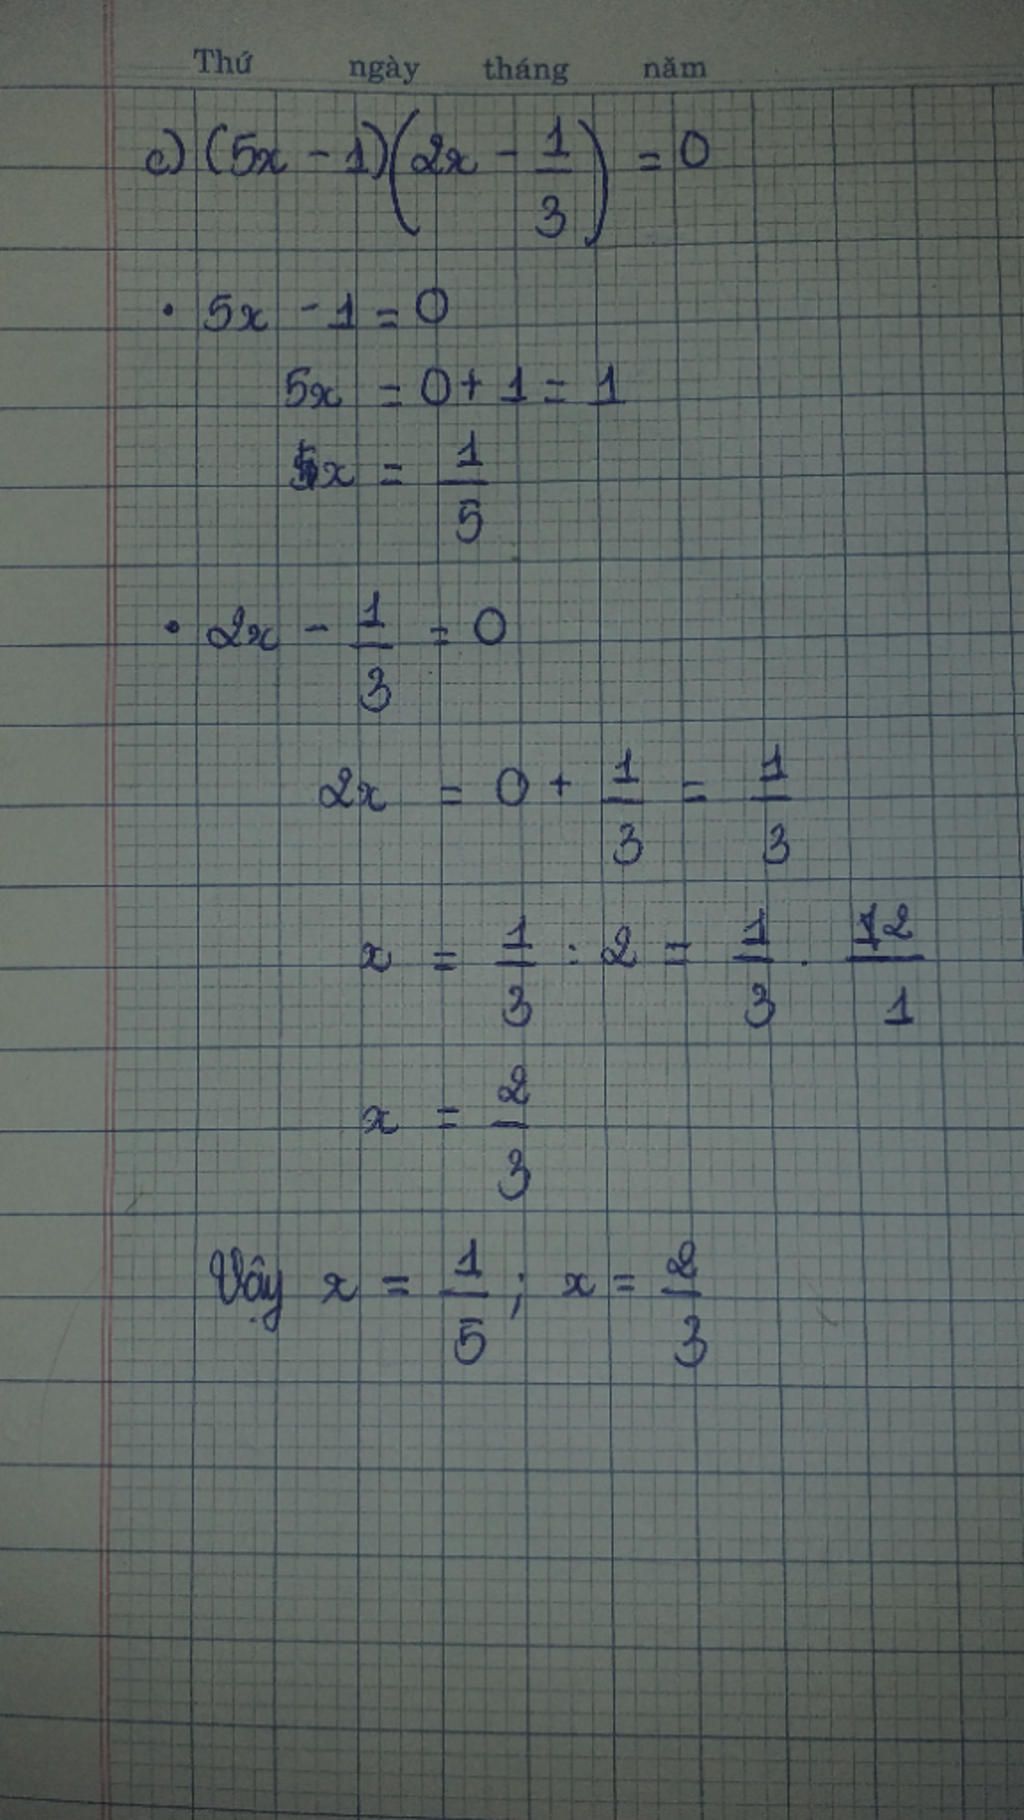 Thứ ngày tháng năm
c) (5x - 1)(2x - 1/3) = 0
• 5x - 1 = 0
5x = 0 + 1 = 1
x = 1/5
• 2x - 1/3 = 0
2x = 0 + 1/3 = 1/3
x = 1/3 : 2 = 1/3 . 2/1
x = 2/3
Vậy x = 1/5 ; x = 2/3